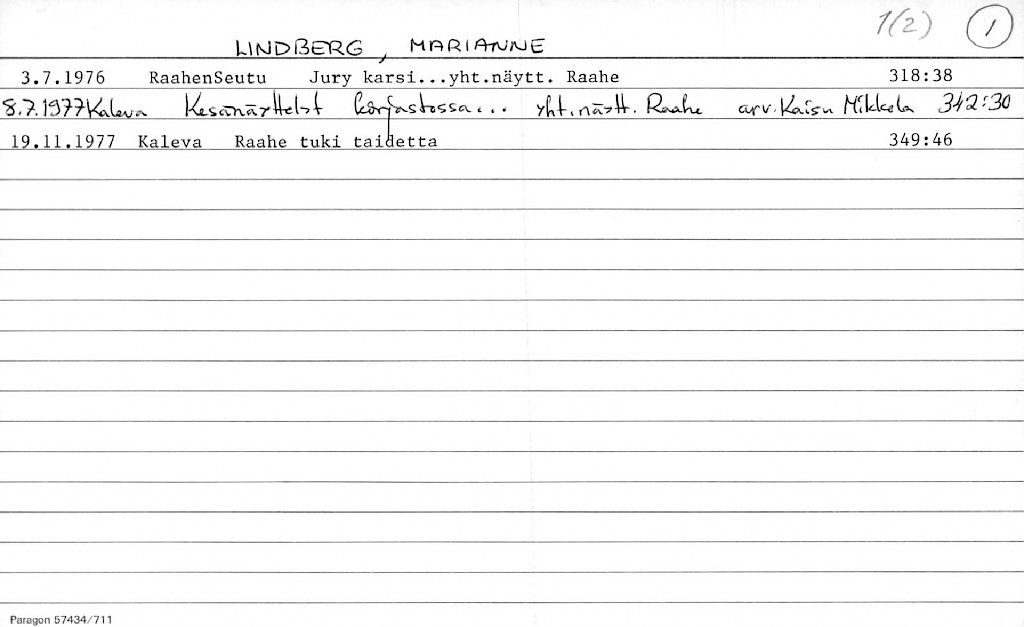 1(2) 1
LINDBERG, MARIANNE
3.7.1976 RaahenSeutu Jury karsi...yht.näytt. Raahe 318:38
8.7.1977 Kaleva Kesänäyttelyt kirjastossa... yht.näytt. Raahe arv. Kaisu Mikkola 342:30
19.11.1977 Kaleva Raahe tuki taidetta 349:46
Paragon 57434/711